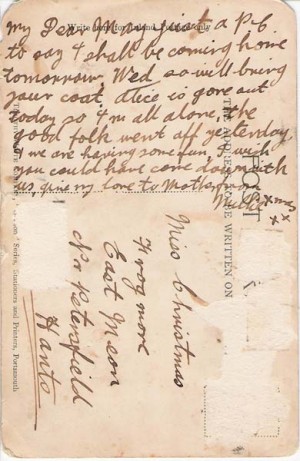 My Dear M Just a P.C.
to say I shall be coming home
tomorrow, Wed so will bring
your coat. Alice is gone out
today so I'm all alone, the
good folk went off yesterday
we are having some fun, I wish
you could have come down with
us, give my love to Mother
xmas
x x
Miss Christmas
Frogmore
East Meon
Nr Petersfield
Hants
Write here for Inland Postage only
BE WRITTEN ON
Series, Stationers and Printers, Portsmouth